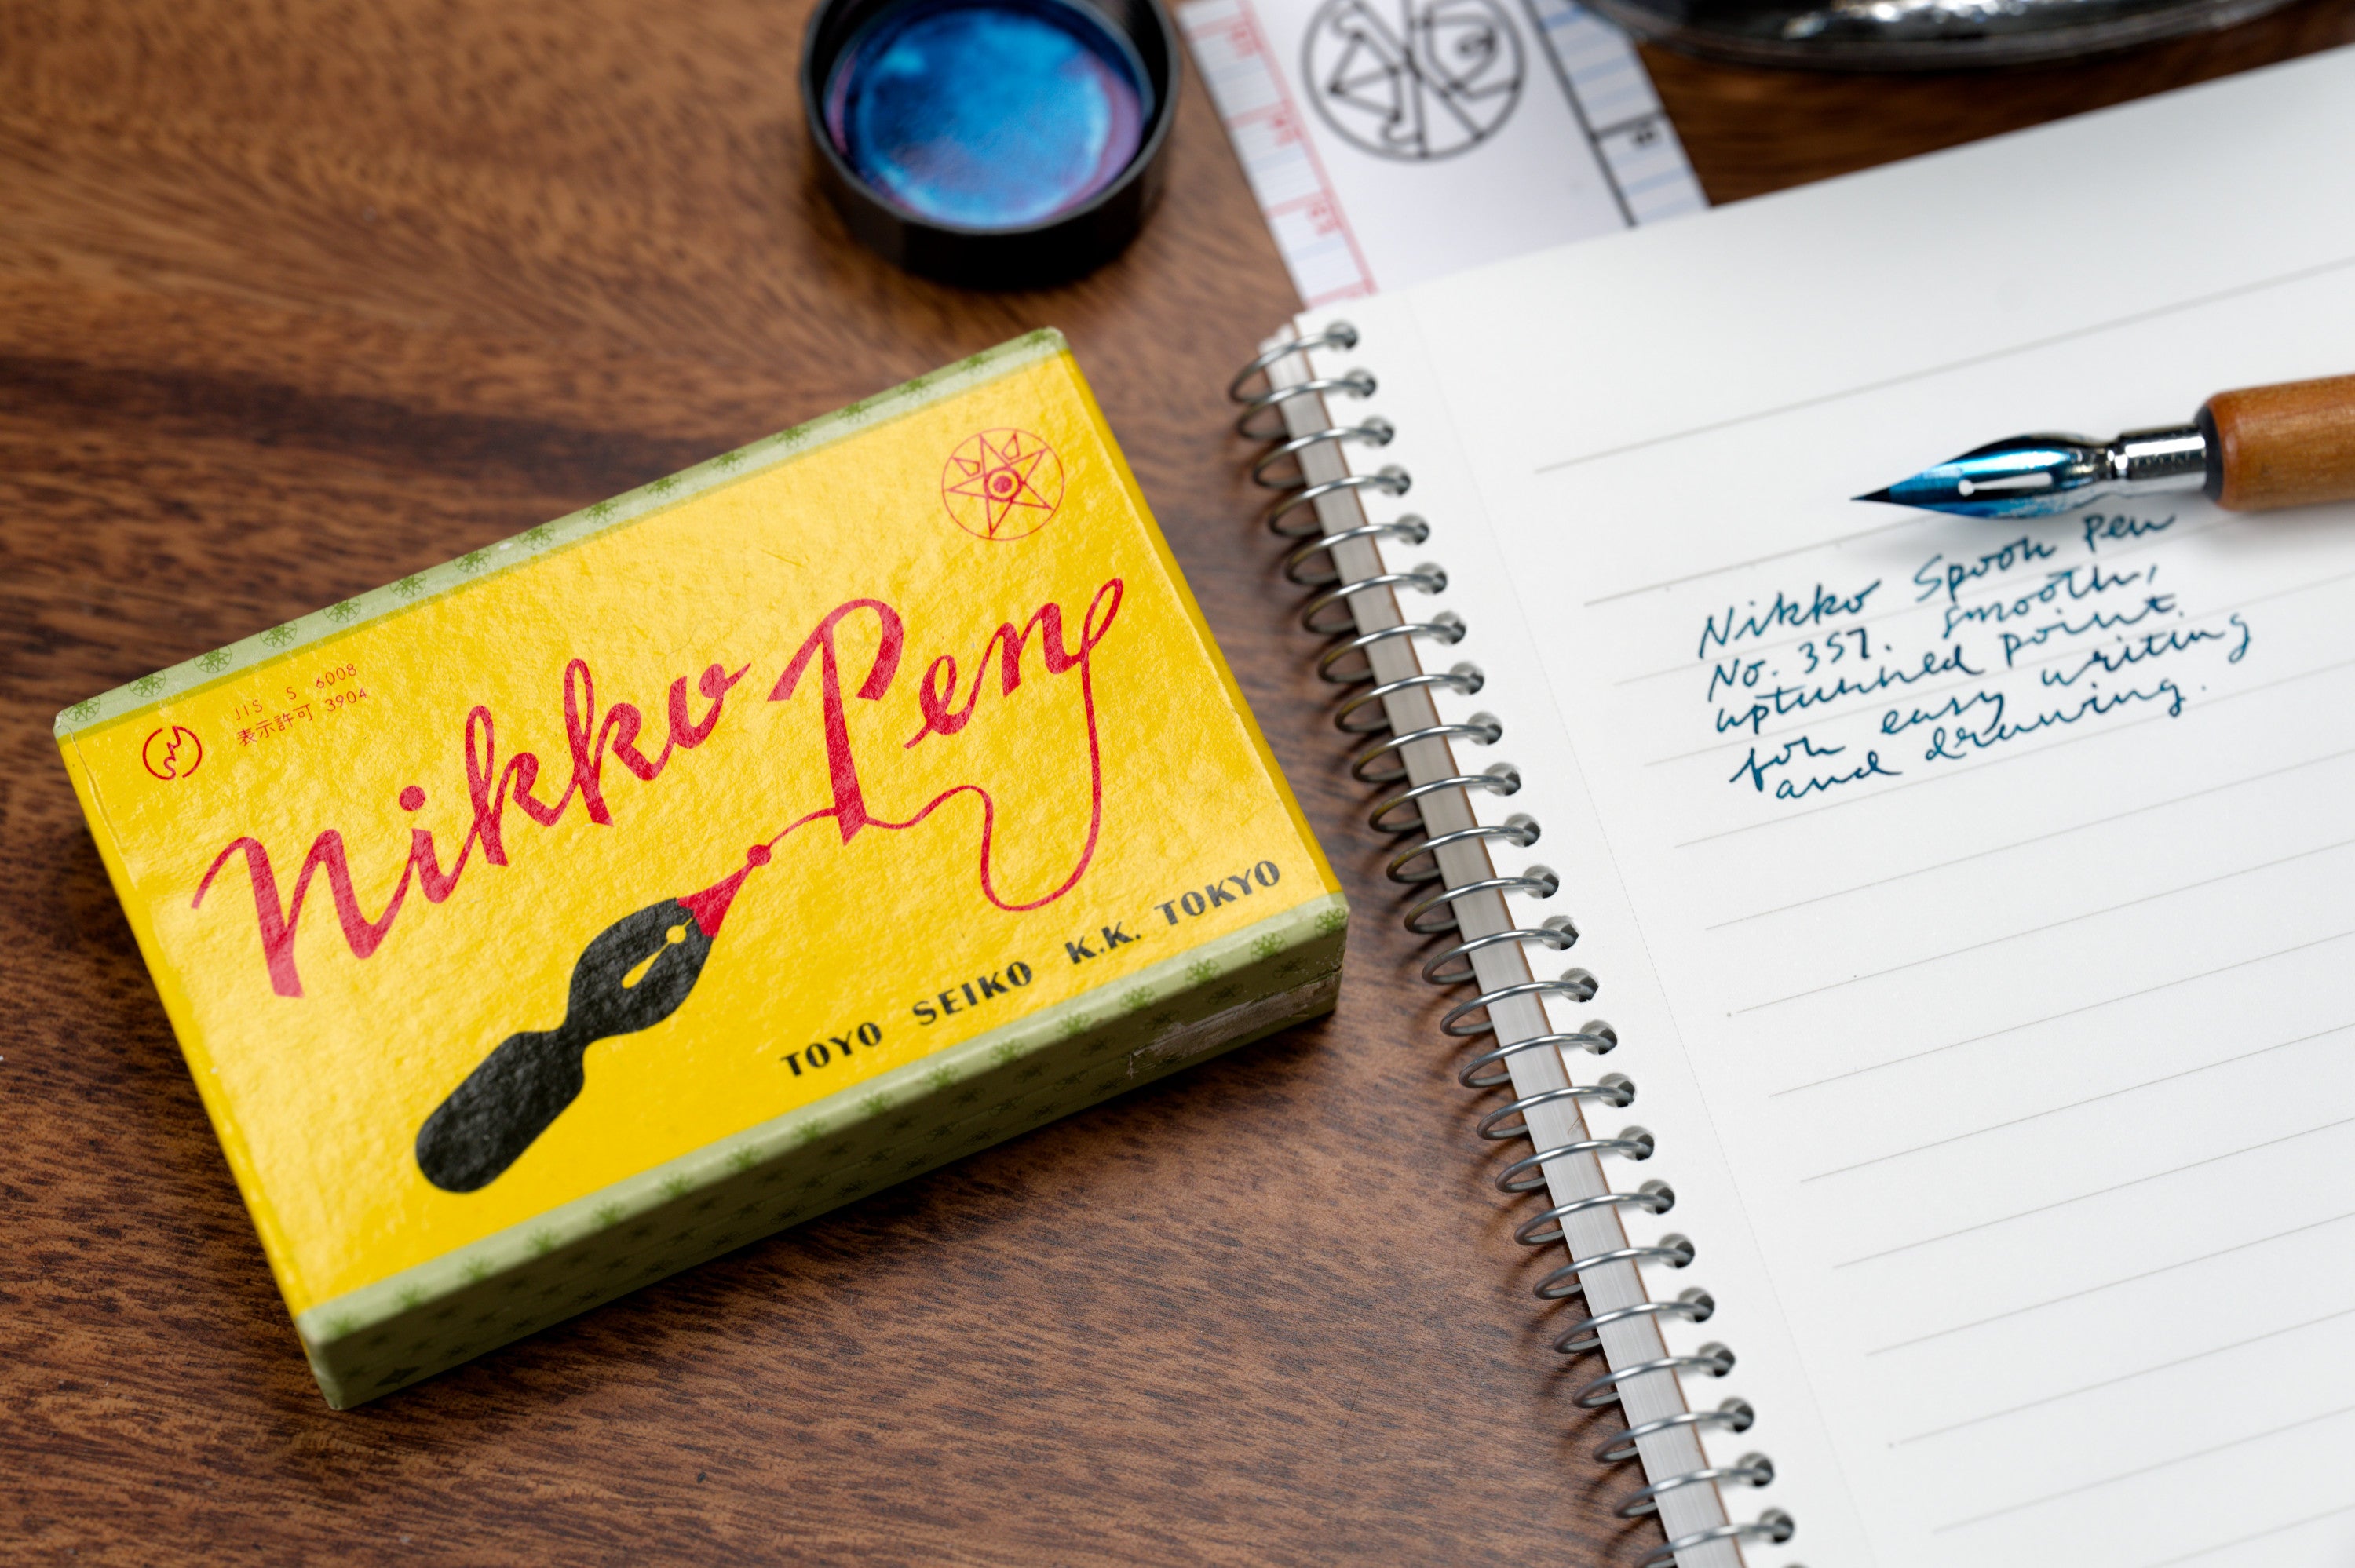 JIS S 6008
表示許可 3904
Nikko Pen
TOYO SEIKO K.K. TOKYO
Nikko Spoon Pen
No. 357. smooth,
upturned point.
for easy writing
and drawing.